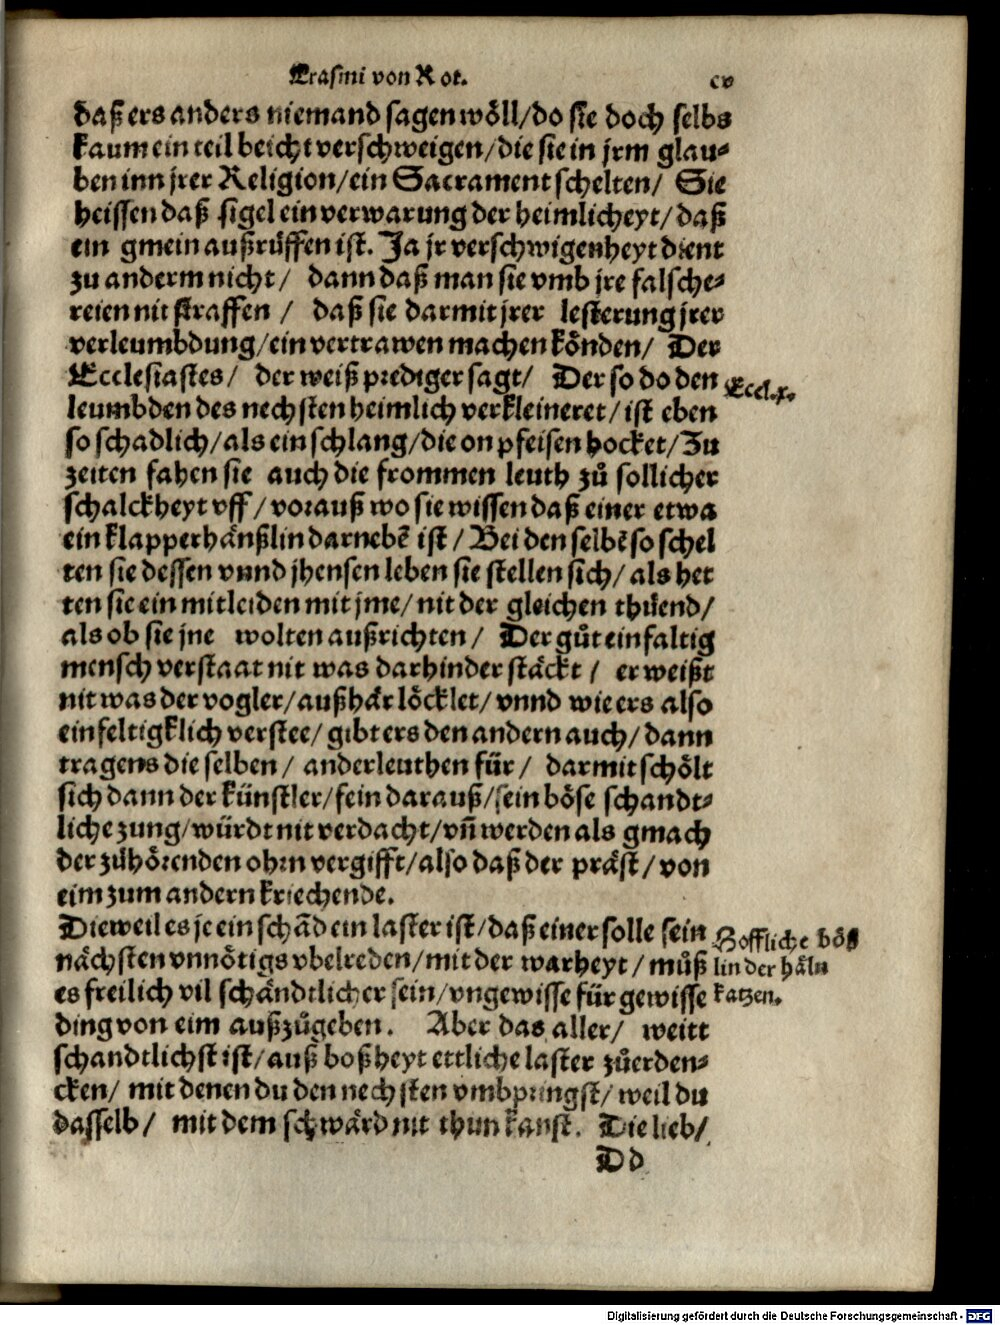 Erasmi von Rot.
cv
daß ers anders niemand sagen wöll/do sie doch selbs
kaum ein teil beicht verschweigen/die sie in jrm glau⸗
ben inn jrer Religion/ein Sacrament schelten/ Sie
heissen daß sigel ein verwarung der heimlicheyt/daß
ein gmein außrüffen ist. Ja jr verschwigenheyt dient
zu anderm nicht/ dann daß man sie vmb jre falsche⸗
reien nit straffen / daß sie darmit jrer lesterung jrer
verleumbdung/ein vertrawen machen könden/ Der
Ecclesiastes/ der weiß prediger sagt/ Der so do den
Eccl.x.
leumbden des nechsten heimlich verkleineret/ist eben
so schadlich/als ein schlang/die on pfeisen hocket/Zu
zeiten fahen sie auch die frommen leuth zů sollicher
schalckheyt vff/vorauß wo sie wissen daß einer etwa
ein klapperhänßlin darnebē ist/Bei den selbē so schel
ten sie dessen vnnd jhensen leben sie stellen sich/als het
ten sie ein mitleiden mit jme/nit der gleichen thüend/
als ob sie jne wolten außrichten/ Der gůt einfaltig
mensch verstaat nit was darhinder stäckt/ er weißt
nit was der vogler/außhär löcklet/vnnd wie ers also
einfeltigklich verstee/gibt ers den andern auch/dann
tragens die selben/ anderleuthen für/ darmit schölt
sich dann der künstler/fein darauß/sein böse schandt⸗
liche zung/würdt nit verdacht/vñ werden als gmach
der zůhörenden ohrn vergifft/also daß der präst/von
eim zum andern kriechende.
Dieweil es je ein schād ein laster ist/daß einer solle sein
nächsten vnnötigs vbelreden/mit der warheyt/můß
es freilich vil schändtlicher sein/vngewisse für gewisse
Hoffliche böß
lin der häln
katzen.
ding von eim außzůgeben. Aber das aller/ weitt
schandtlichst ist/auß boßheyt ettliche laster zůerden⸗
cken/ mit denen du den nechsten vmbpringst/weil du
dasselb/ mit dem schwärd nit thun kanst. Die lieb/
Dd
Digitalisierung gefördert durch die Deutsche Forschungsgemeinschaft - DFG